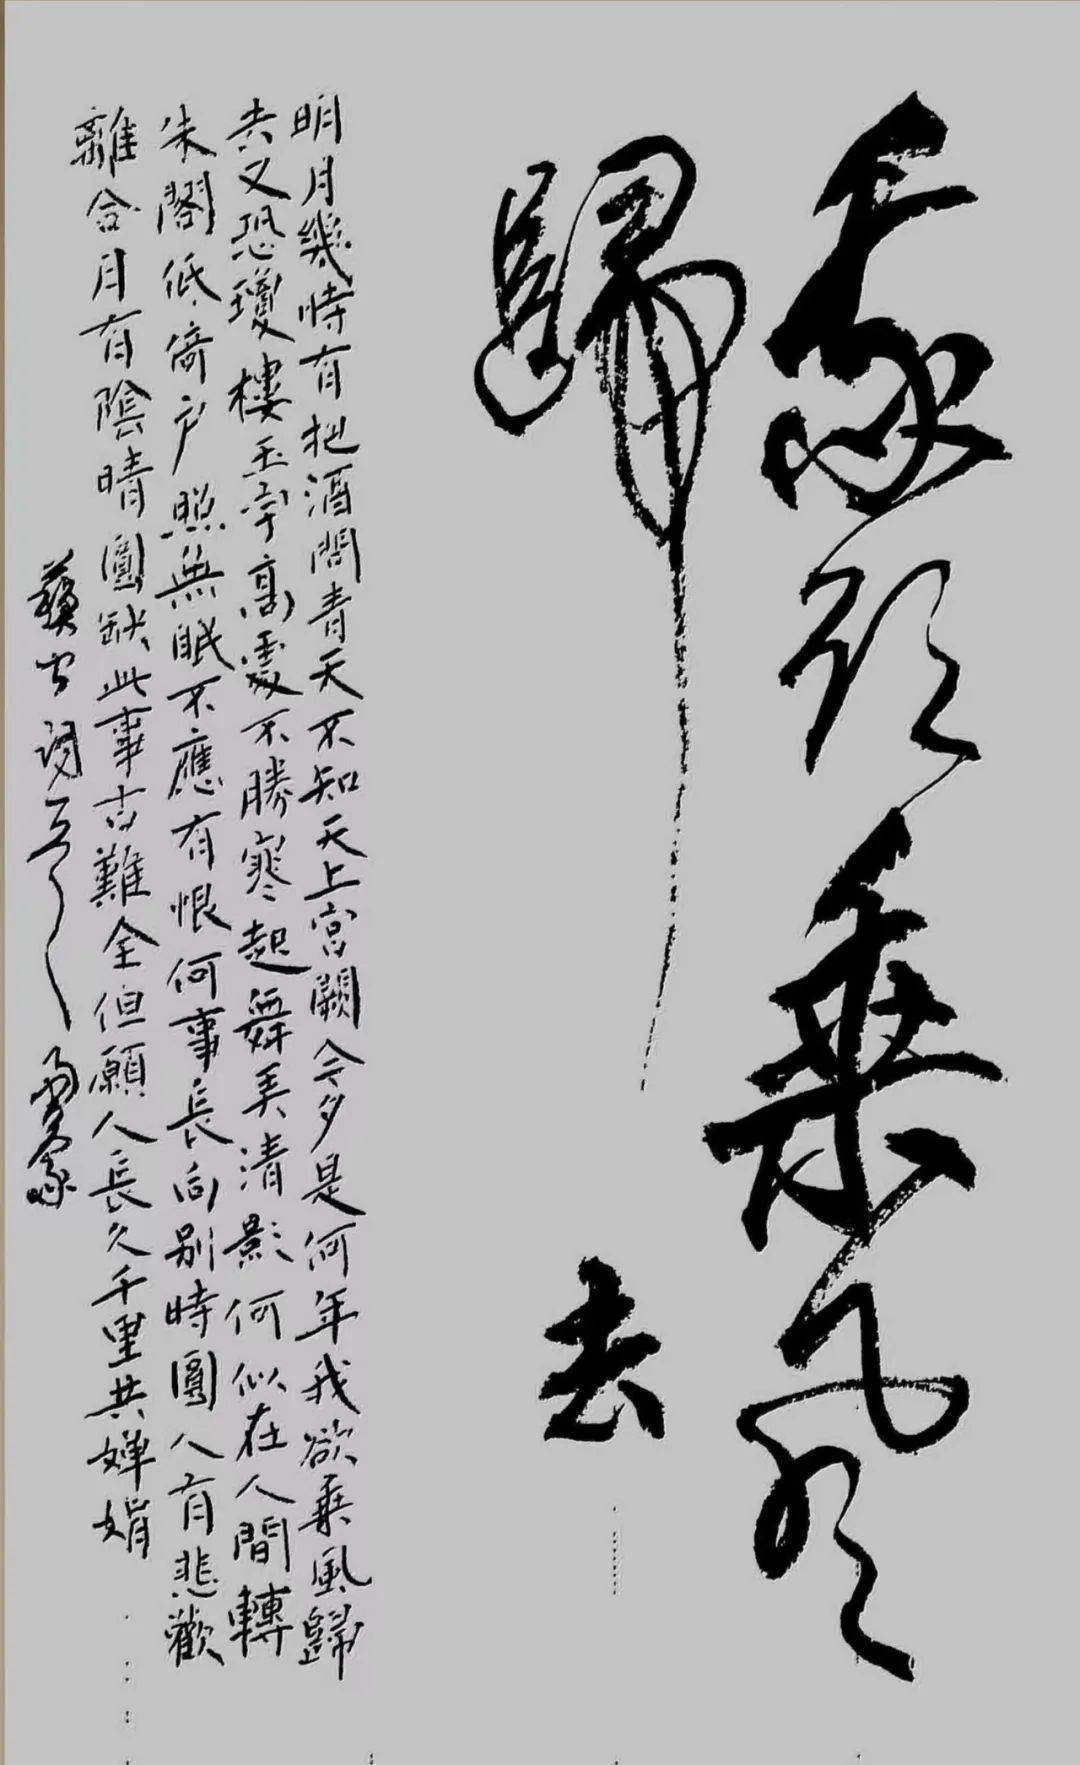 我欲乘风
歸
去
明月幾時有把酒問青天不知天上宫闕今夕是何年我欲乘風歸
去又恐瓊樓玉宇髙處不勝寒起舞弄清影何似在人間轉
朱閣低倚户照無眠不應有恨何事長向别時圓人有悲歡
離合月有陰晴圓缺此事古難全但願人長久千里共嬋娟
蘇公詞